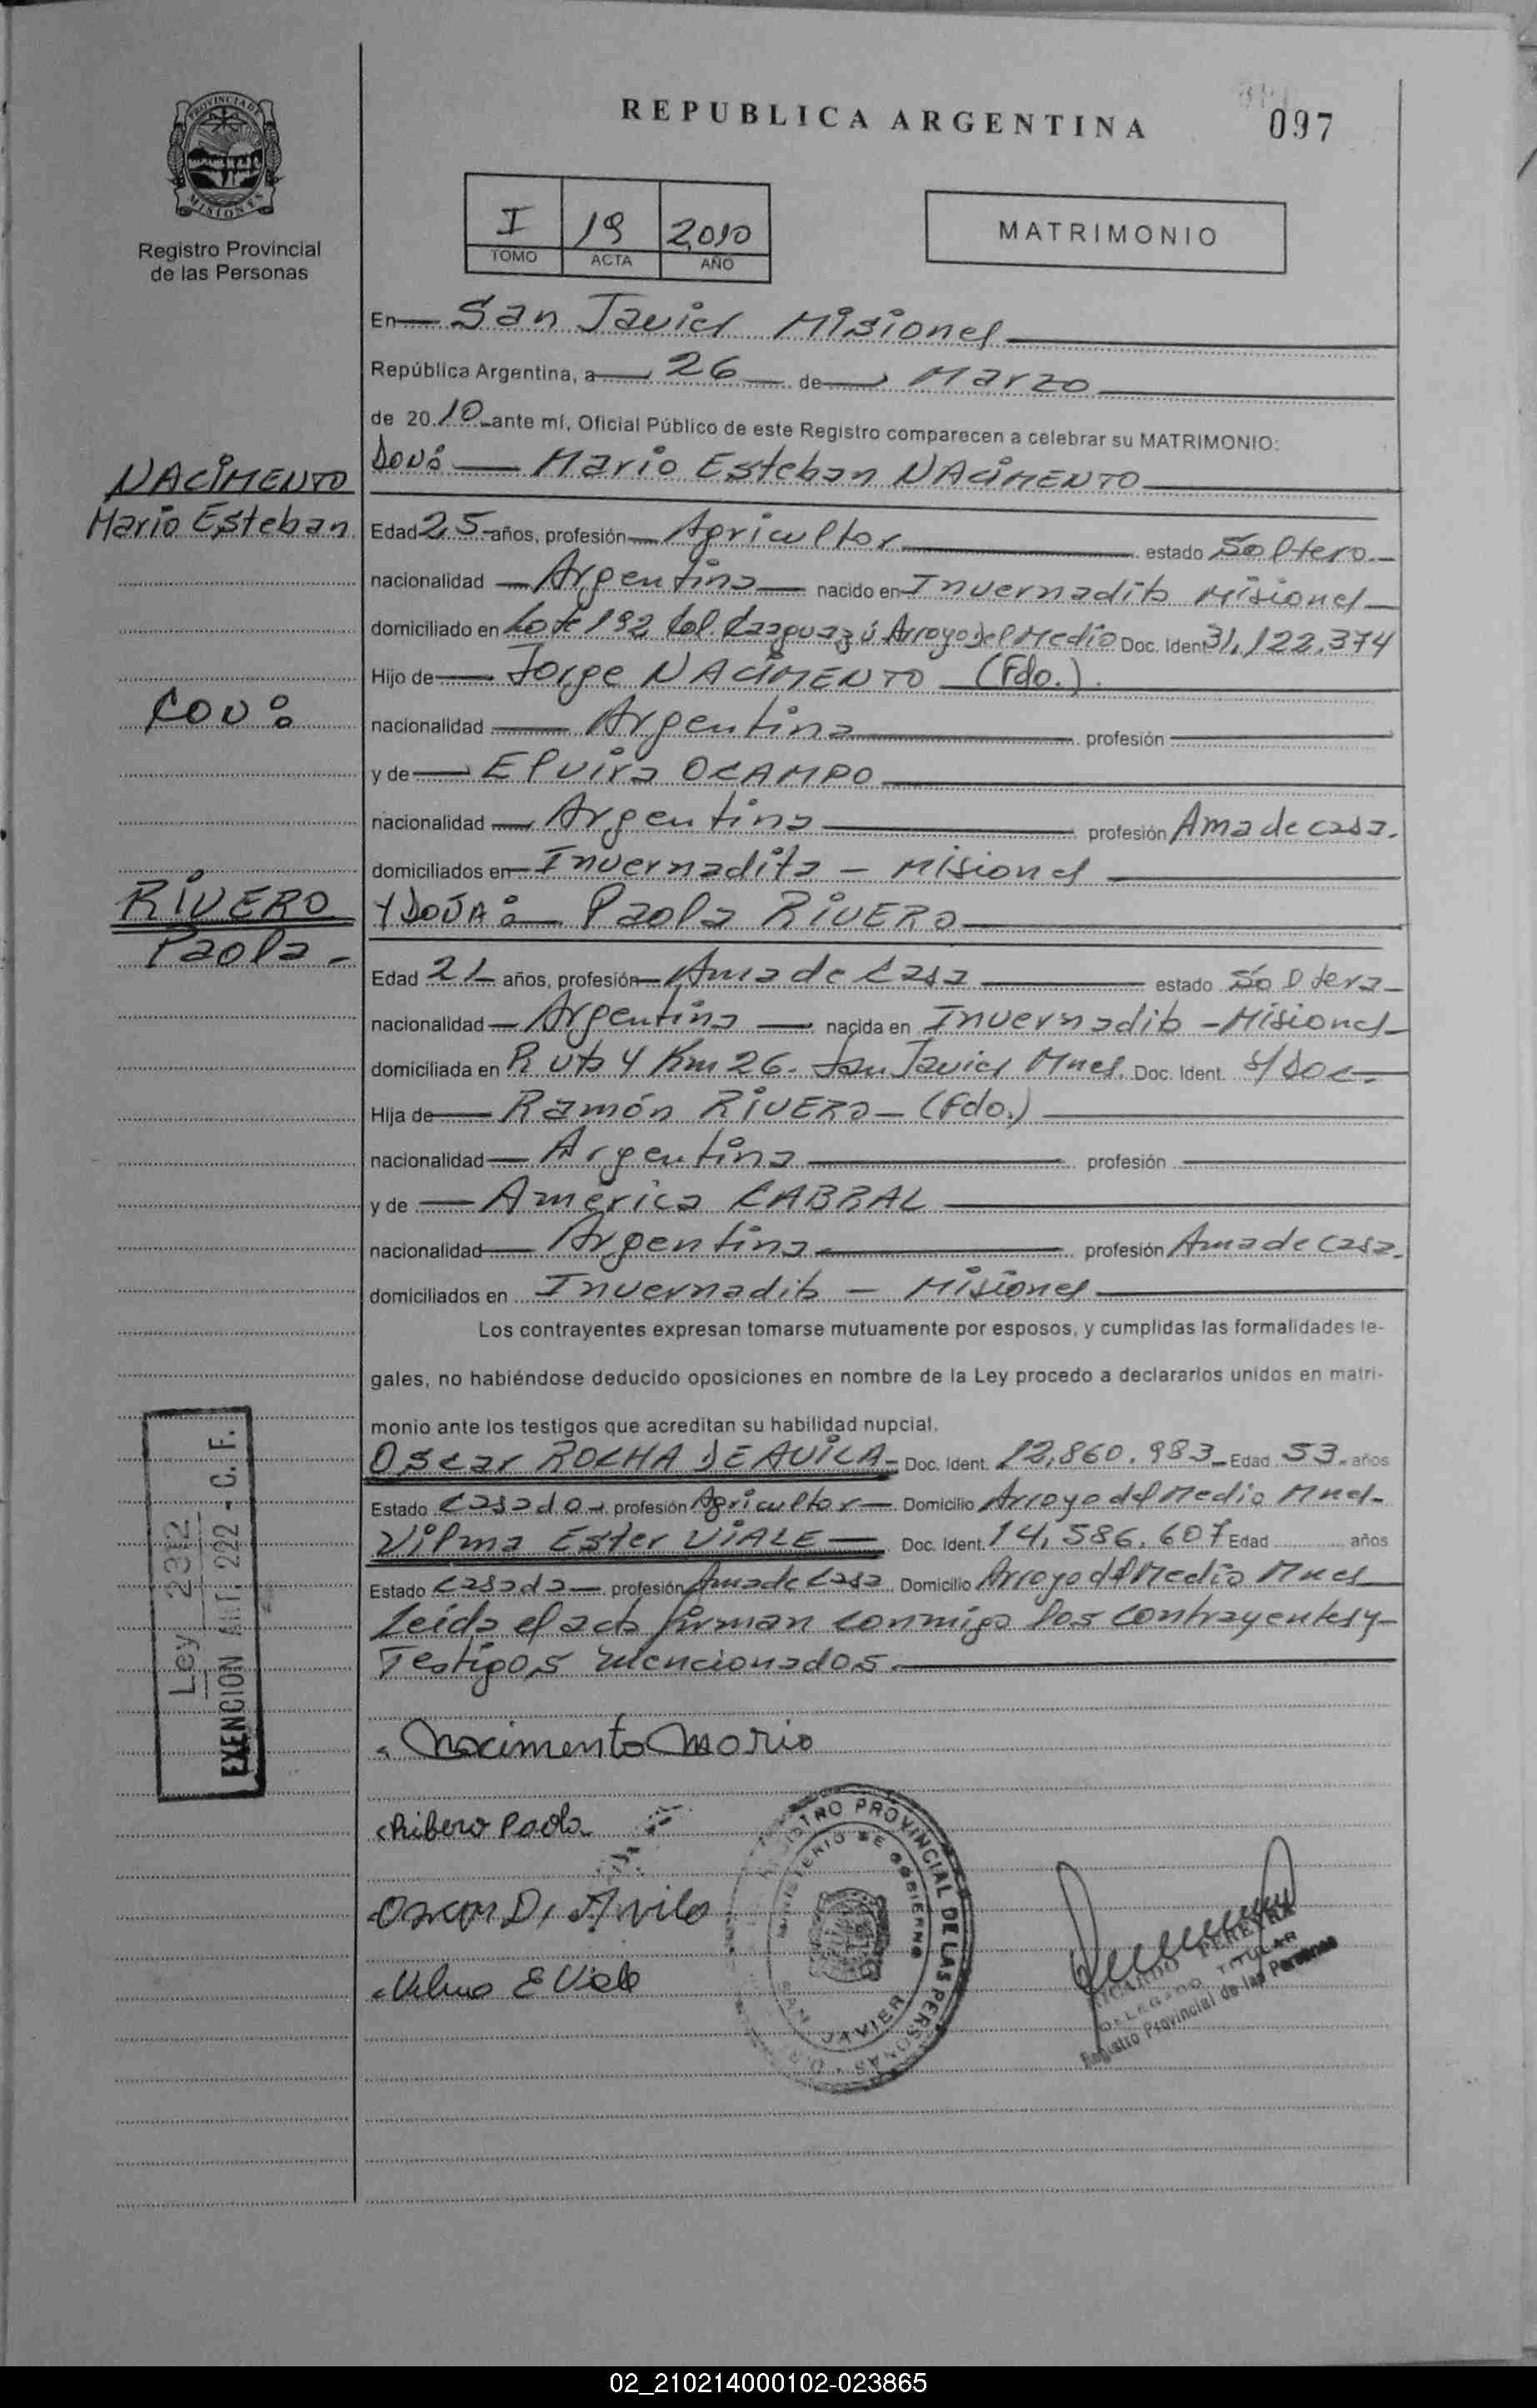 REPUBLICA ARGENTINA
097
PROVINCIA DE
MISIONES
Registro Provincial
de las Personas
I 19 2010
TOMO ACTA AÑO
MATRIMONIO
En San Javier Misiones
República Argentina, a 26 de Marzo
de 2010 ante mí, Oficial Público de este Registro comparecen a celebrar su MATRIMONIO:
DON: Mario Esteban NACIMENTO
NACIMENTO
Mario Esteban
Edad 25 años, profesión Agricultor estado Soltero.
nacionalidad Argentina nacido en Invernadita Misiones
domiciliado en Lote 192 Col. Caaguazú Arroyo del Medio Doc. Ident 31.122.374
Hijo de Jorge NACIMENTO (Fdo.).
CON:
nacionalidad Argentina profesión
y de Elvira OCAMPO
nacionalidad Argentina profesión Ama de casa.
domiciliados en Invernadita - Misiones
RIVERO
Paola -
Y DOÑA: Paola RIVERO
Edad 21 años, profesión Ama de Casa estado Soltera
nacionalidad Argentina nacida en Invernadita - Misiones
domiciliada en Ruta 4 Km 26. San Javier Mnes. Doc. Ident. S/Doc.
Hija de Ramón RIVERO - (Fdo.)
nacionalidad Argentina profesión
y de America CABRAL
nacionalidad Argentina profesión Ama de casa.
domiciliados en Invernadita - Misiones
Los contrayentes expresan tomarse mutuamente por esposos, y cumplidas las formalidades le-
gales, no habiéndose deducido oposiciones en nombre de la Ley procedo a declararlos unidos en matri-
monio ante los testigos que acreditan su habilidad nupcial.
Oscar ROCHA DE AVILA - Doc. Ident. 12.860.983 Edad 53 años
Estado Casado profesión Agricultor Domicilio Arroyo del Medio Mnes
Vilma Ester VIALE Doc. Ident. 14.586.607 Edad años
Estado Casada profesión Ama de Casa Domicilio Arroyo del Medio Mnes
Leída el acta firman conmigo los contrayentes y
Testigos mencionados.
Ley 2302
EXENCION ART. 222 - C. F.
Nacimento Mario
Ribero Paola
Oscar D, Avila
Vilma E Viale
REGISTRO PROVINCIAL DE LAS PERSONAS
MINISTERIO DE GOBIERNO
SAN JAVIER
RICARDO PEREYRA
DELEGADO TITULAR
Registro Provincial de las Personas
02_210214000102-023865